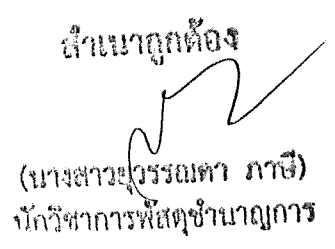 สำเนาถูกต้อง
(นางสาวยุวรรณดา ภาษี)
นักวิชาการพัสดุชำนาญการ